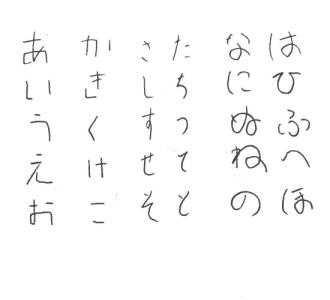 あ か さ た な は
い き し ち に ひ
う く す つ ぬ ふ
え け せ て ね へ
お こ そ と の ほ